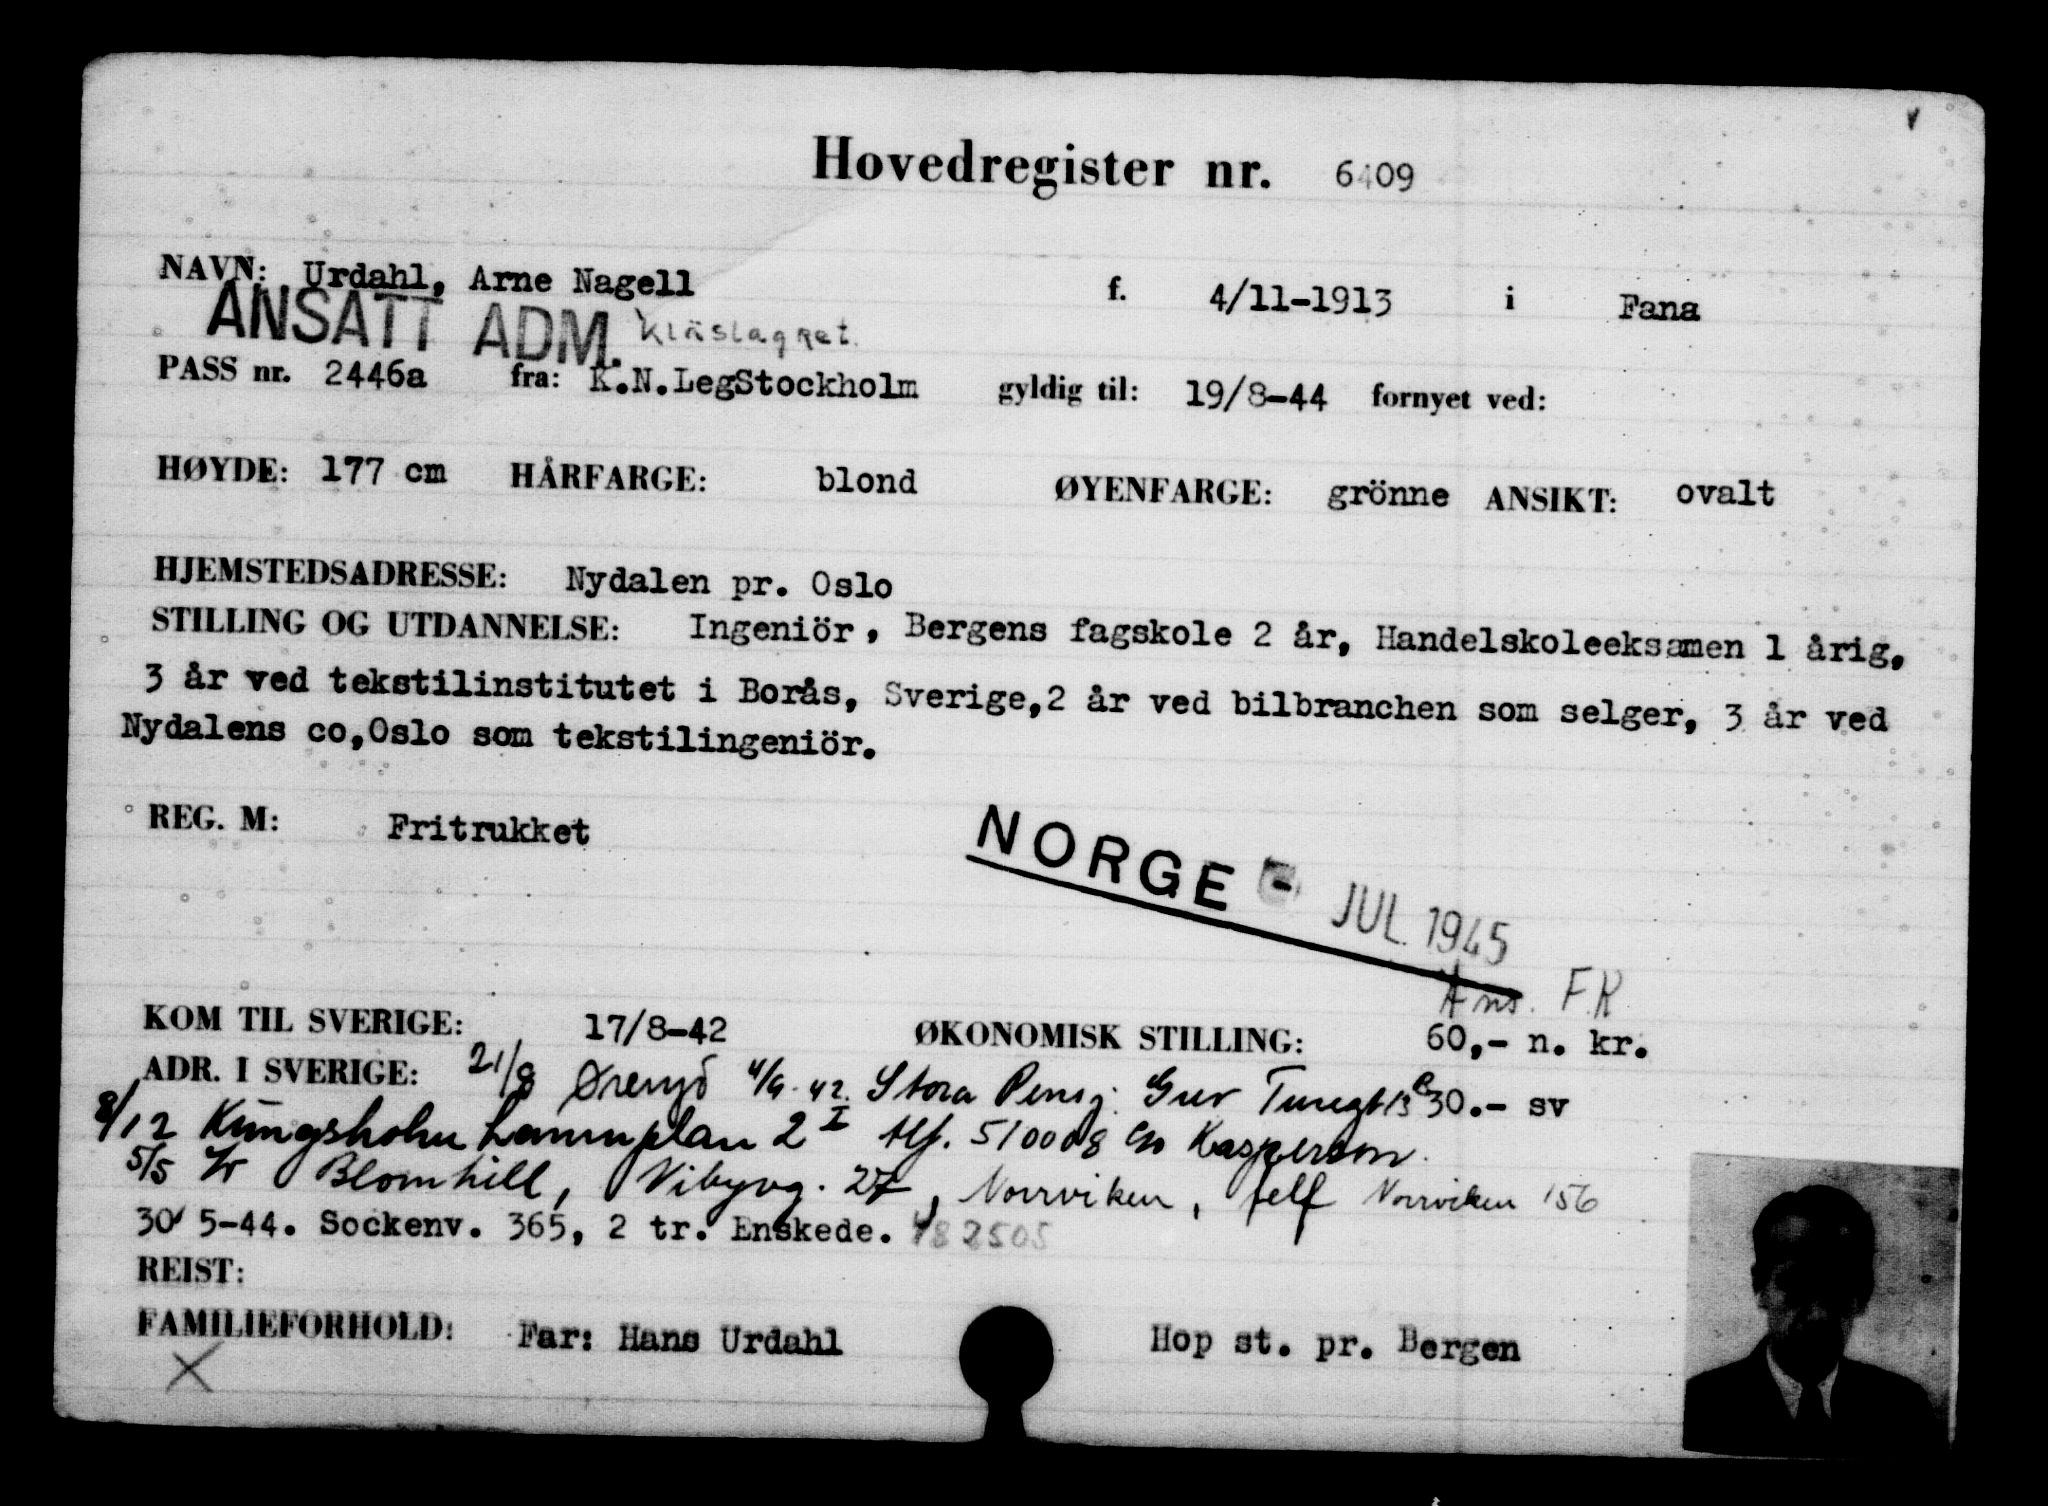 Hovedregister nr. 6409
NAVN: Urdahl, Arne Nagell f. 4/11-1913 i Fana
ANSATT ADM. Kläslagret.
PASS nr. 2446a fra: K.N.LegStockholm gyldig til: 19/8-44 fornyet ved:
HØYDE: 177 cm HÅRFARGE: blond ØYENFARGE: grönne ANSIKT: ovalt
HJEMSTEDSADRESSE: Nydalen pr. Oslo
STILLING OG UTDANNELSE: Ingeniör, Bergens fagskole 2 år, Handelskoleeksamen 1 årig,
3 år ved tekstilinstitutet i Borås, Sverige,2 år ved bilbranchen som selger, 3 år ved
Nydalens co,Oslo som tekstilingeniör.
REG. M: Fritrukket
NORGE - JUL. 1945
Ans. F.K
KOM TIL SVERIGE: 17/8-42 ØKONOMISK STILLING: 60,- n. kr.
ADR. I SVERIGE: 21/8 Øreryd 4/9-42. Stora Pensj. Grev Turegt 13 30.- sv
8/12 Kungsholms Hamnplan 2 I tlf. 510008 c/o Kasperson.
5/5 Blomhill, Vibyvg. 27, Norrviken, telf Norrviken 156
30/5-44. Sockenv. 365, 2 tr. Enskede. 482505
REIST:
FAMILIEFORHOLD: Far: Hans Urdahl Hop st. pr. Bergen